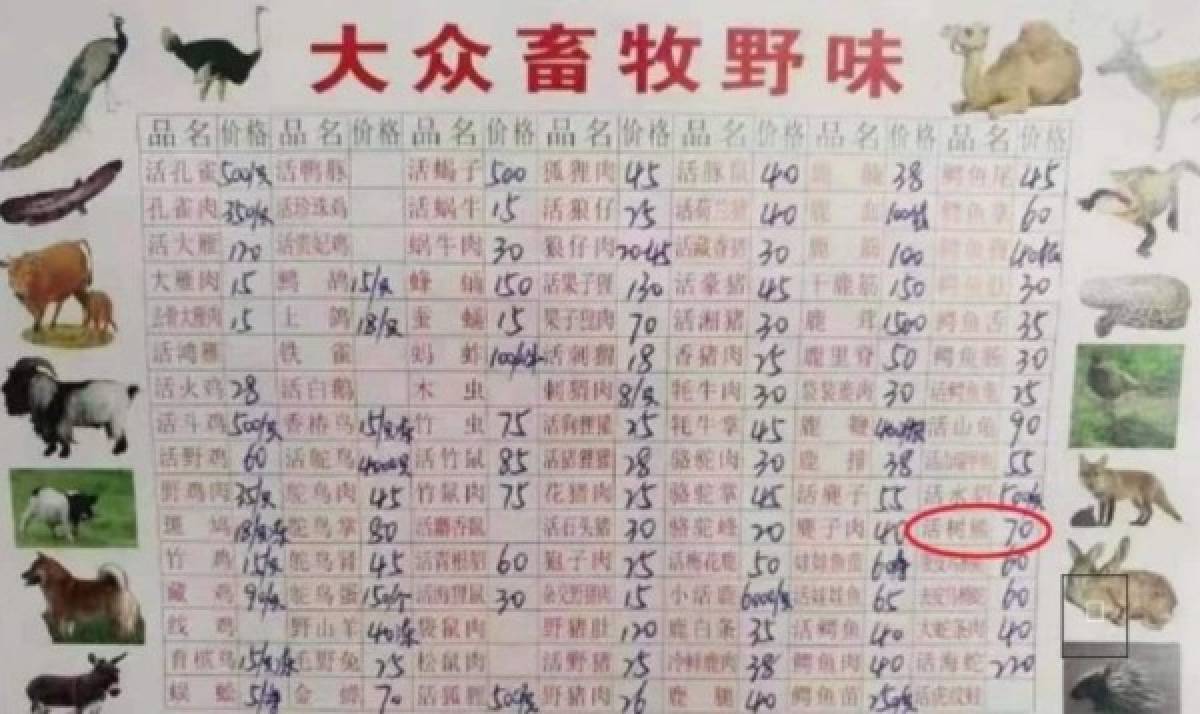 大众畜牧野味
品名 价格 品名 价格 品名 价格 品名 价格 品名 价格 品名 价格 品名 价格
活孔雀 500/只 活鸭豚 活蝎子 500 狐狸肉 45 活豚鼠 40 38 鳄鱼尾 45
孔雀肉 350/只 活珍珠鸡 活蜗牛 15 活狼仔 25 活荷兰猪 40 鹿血 鳄鱼掌 60
活大雁 120 活贵妃鸡 蜗牛肉 30 狼仔肉 活藏香猪 30 鹿筋 100
大雁肉 15 鹧鸪 15/只 蜂蛹 150 活果子狸 130 活豪猪 45 干鹿筋 150 30
去骨大雁肉 15 土鸽 18/只 蚕蛹 15 果子狸肉 70 活湘猪 30 鹿茸 1500 鳄鱼舌 35
活鸿雁 铁雀 蚂蚱 活刺猬 18 香猪肉 25 鹿里脊 50 鳄鱼肠 30
活火鸡 28 活白鹅 木虫 刺猬肉 8/只 牦牛肉 30 袋装鹿肉 30 活鳄鱼龟 25
活斗鸡 500/只 香椿鸟 竹虫 75 活狗狸獾 25 牦牛掌 45 鹿鞭 活山龟 90
活野鸡 60 活鸵鸟 竹鼠 85 活猪狸獾 28 骆驼肉 30 鹿排 38 55
野鸡肉 35/只 鸵鸟肉 45 竹鼠肉 75 花猪肉 25 骆驼掌 45 活麂子 55
斑鸠 鸵鸟掌 80 活麝香鼠 活石头猪 30 骆驼峰 20 麂子肉 40 活树熊 70
竹鸡 15/只 鸵鸟肾 45 活青根貂 60 狍子肉 25 活梅花鹿 50 娃娃鱼苗 60
藏鸡 90/只 鸵鸟蛋 150/个 活海狸鼠 30 杂交野猪肉 15 小活鹿 6000/只 活娃娃鱼 65 60
线鸡 野山羊 袋鼠肉 野猪肚 120 鹿白条 35 活鳄鱼 40 大蛇条肉 40
育槟鸟 毛野兔 25 松鼠肉 活野猪 25 冷鲜鹿肉 38 鳄鱼肉 40 活海蛇 220
蜈蚣 金蝉 70 活狐狸 500/只 野猪肉 26 鹿腿 40 鳄鱼苗 活虎纹蛙